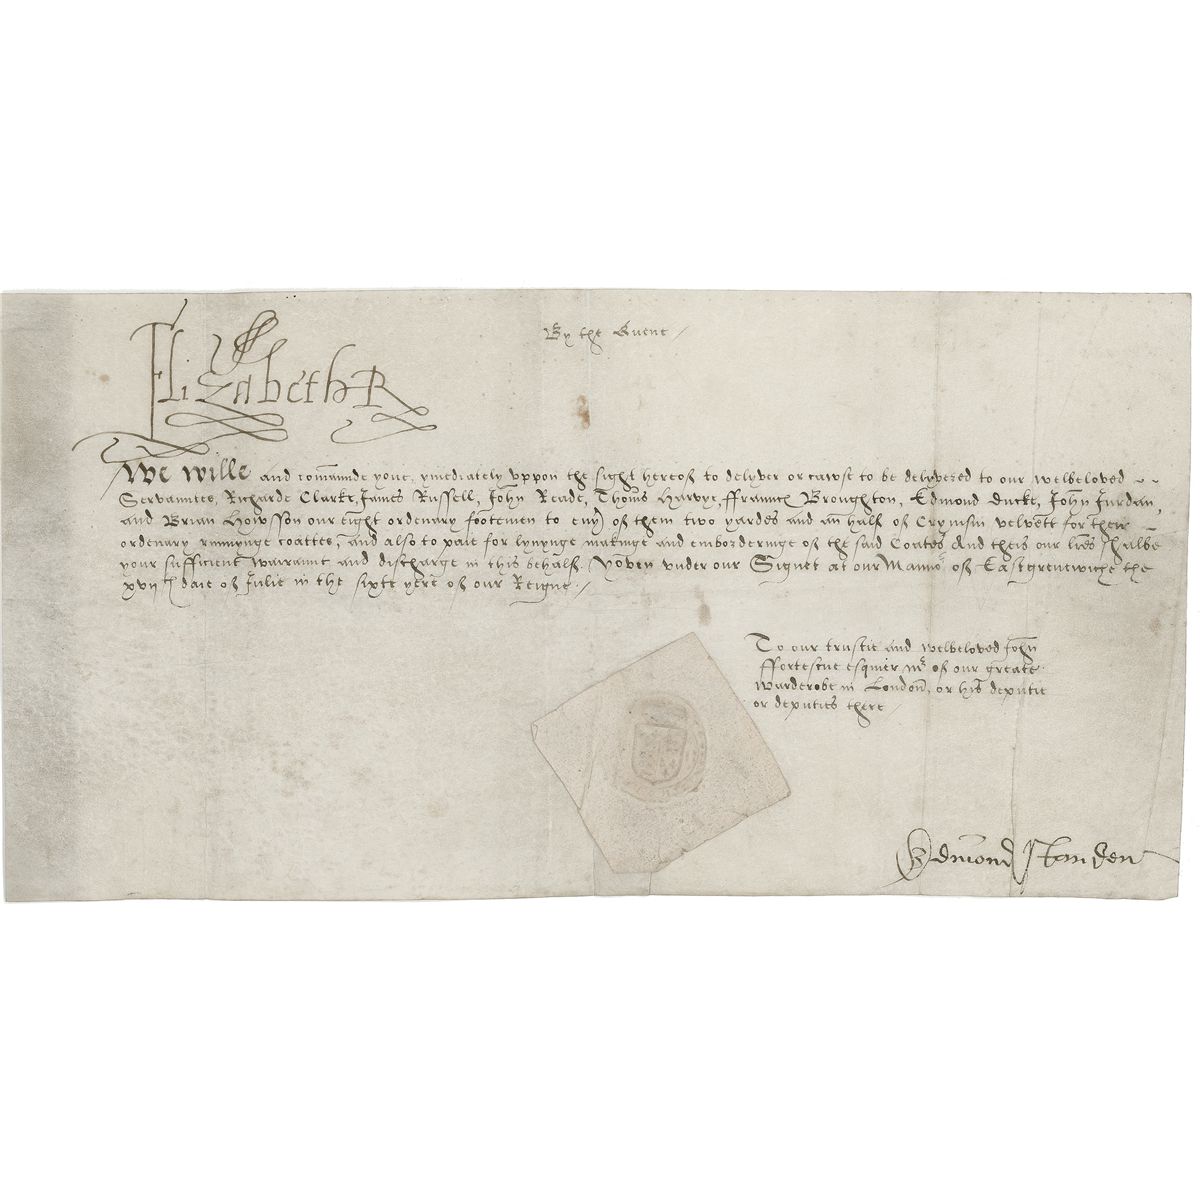 Elizabeth R
By the Quene
We wille and com̄aunde youe, ymediately vppon the sight hereof to delyver or cawse to be delyvered to our welbeloved
Servauntes, Richarde Clarke, James Russell, John Reade, Thom̄s Harvye, ffraunc̄ Broughton, Edmond Ducke, John Jurdan,
and Brian Howsson our eight ordenary footemen to eūy of them two yardes and an half of Crymsin velvett for their
ordenary runnynge coattes, and also to paie for lynynge makinge and emborderinge of the said Coates And theis our lr̄es shalbe
your sufficient warraunt and discharge in this behalf. Yoven vnder our Signet at our Mano of Eastgrenewiche the
xvijth daie of Julie in the sixte yere of our Reigne.
To our trustie and welbeloved John
ffortescue esquier mr of our greate
warderobe in London, or his deputie
or deputies there
Edmond Standen